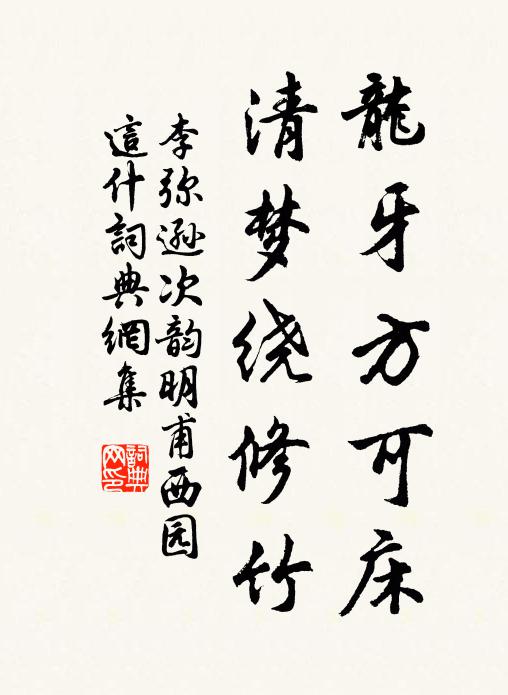 龍牙方可床
清梦绕修竹
李弥逊次韵明甫西园
這什詞典網集
詞典网印